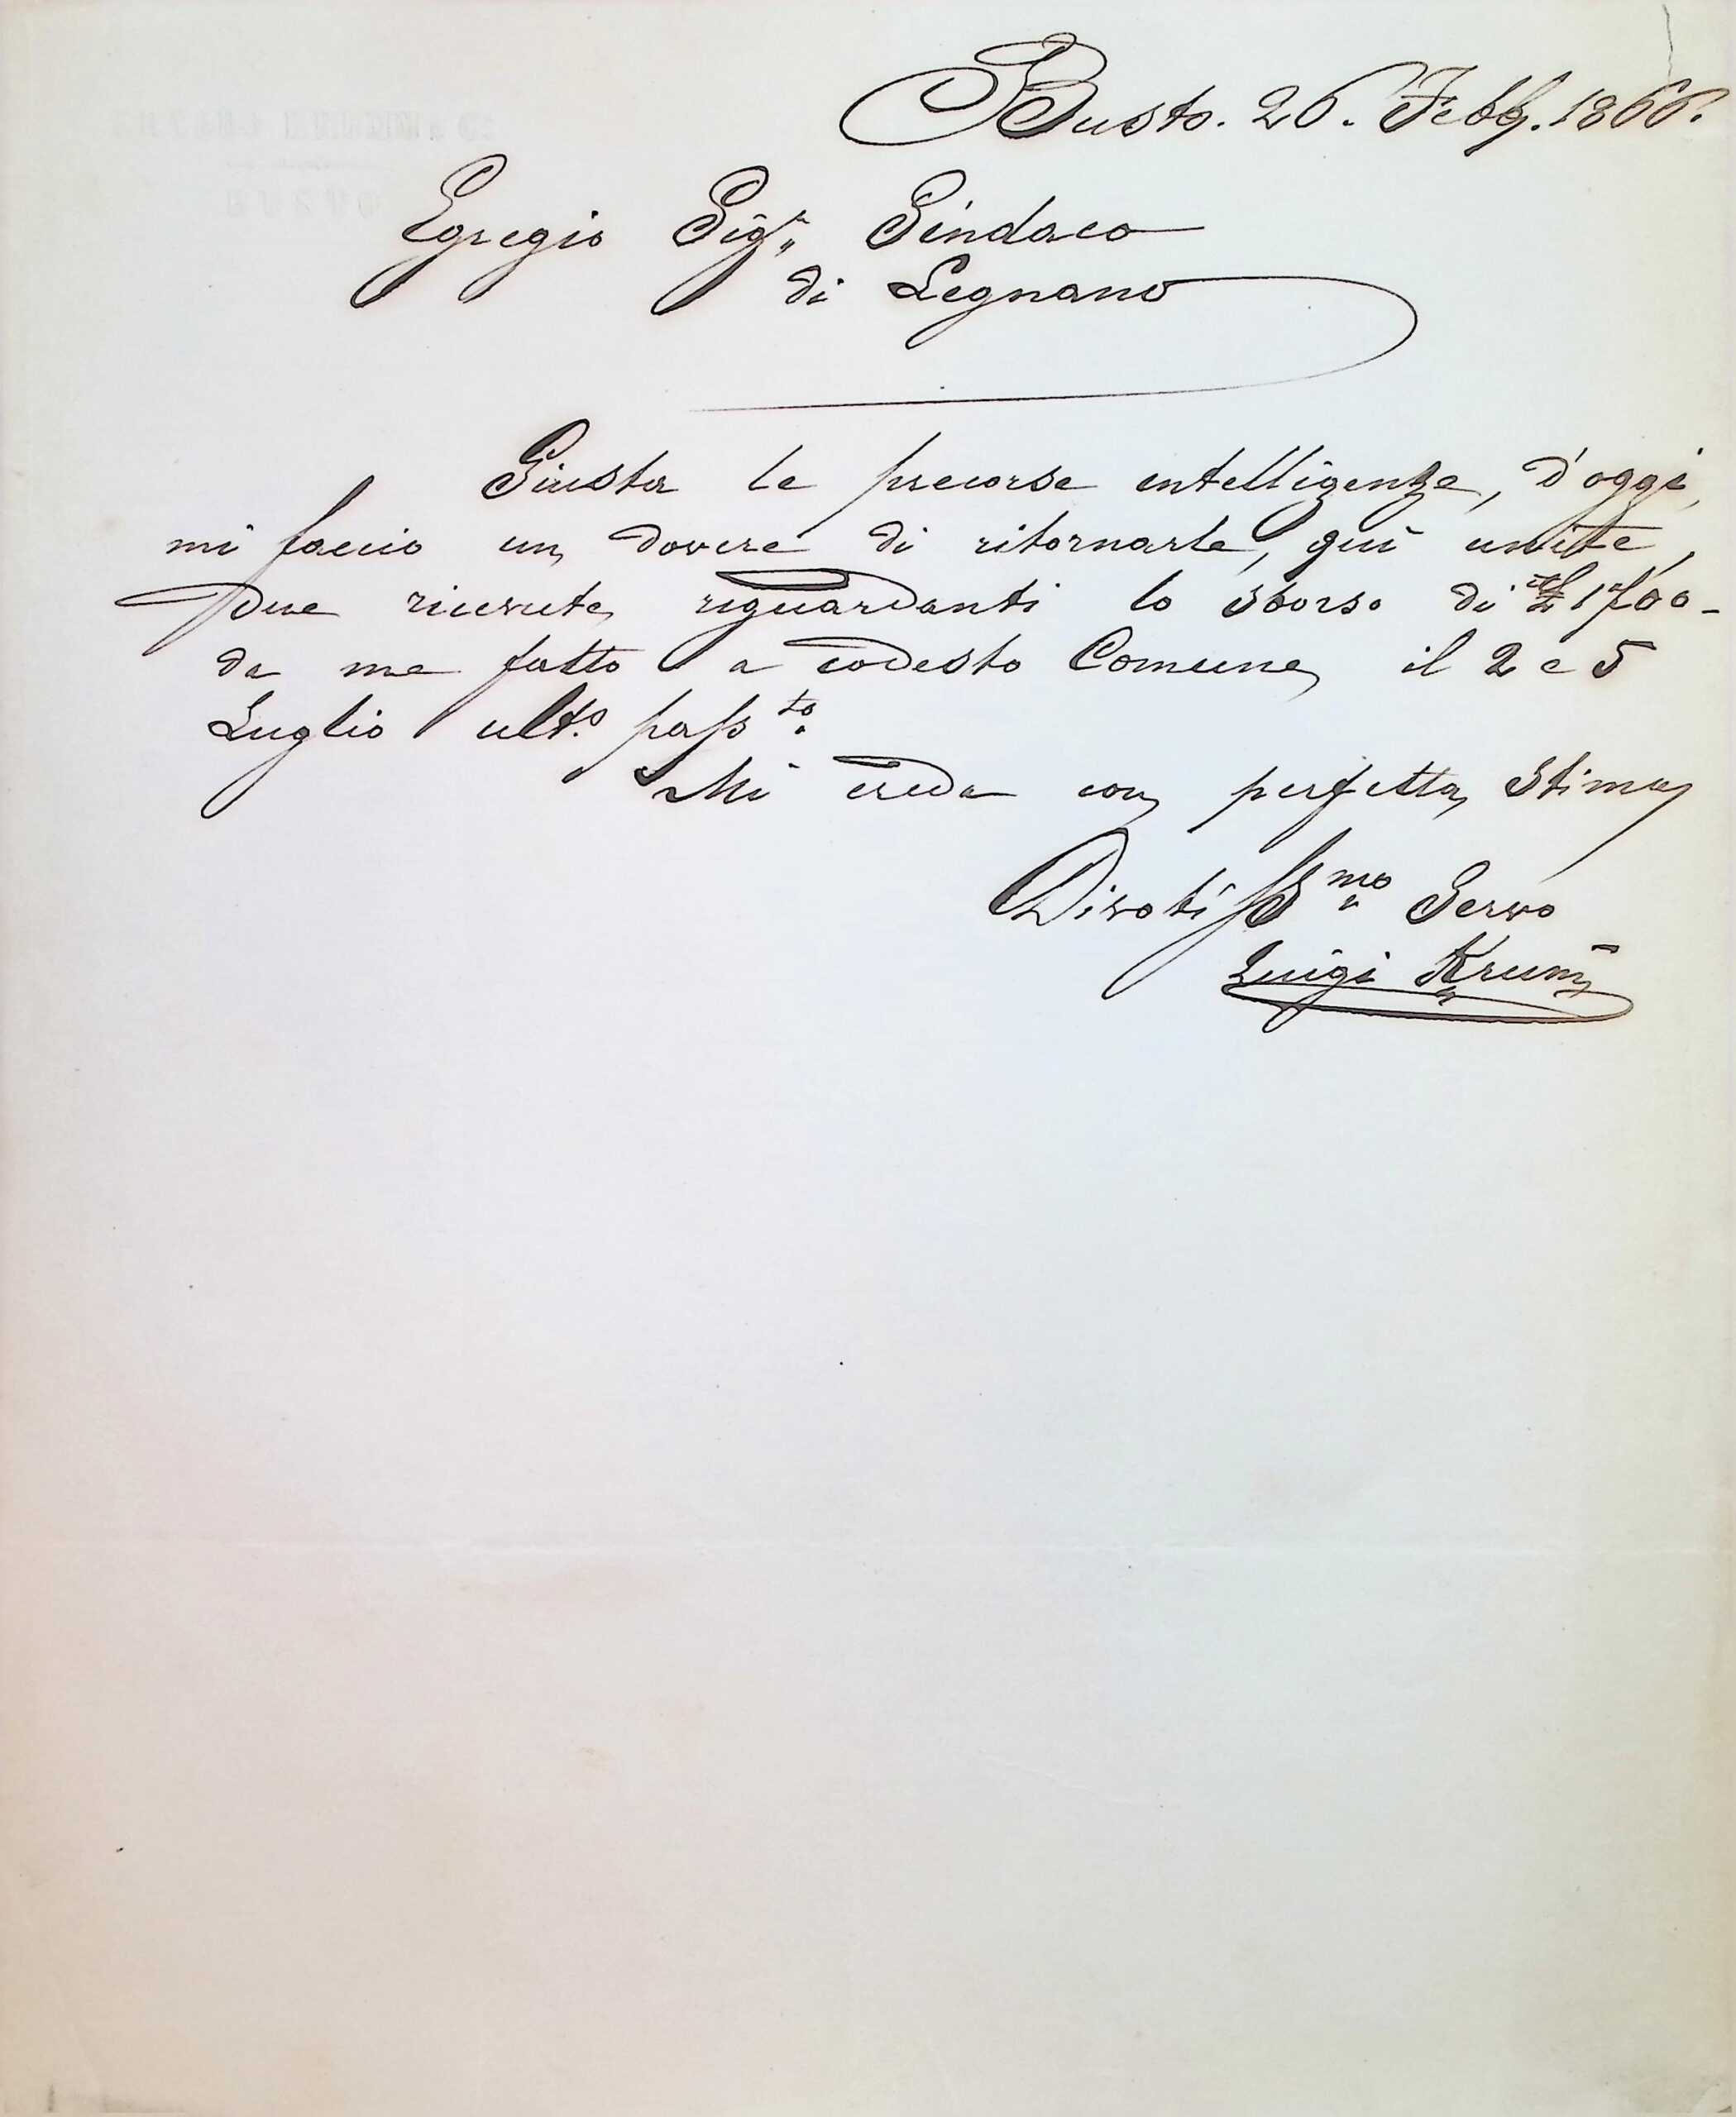 Busto. 26. Febb. 1866.
Egregio Sig.r Sindaco
di Legnano
Giusta le precorse entelligenze, d'oggi,
mi faccio un dovere di ritornarle, quì unite,
due ricevute, riguardanti lo sborso di 1700-
da me fatto a codesto Comune, il 2 e 5
Luglio ult.o pass.to
Mi creda con perfetta, stima,
Divotiss.mo Servo
Luigi Krum̄